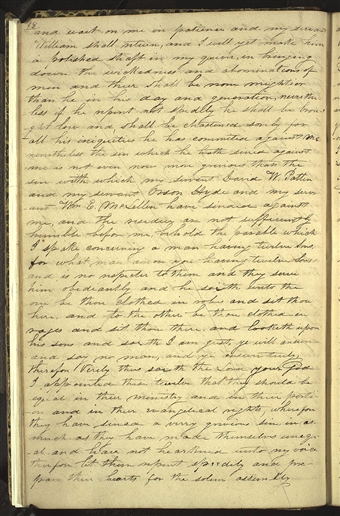 and wait on me in patience and my servant
William shall return, and I will yet make him
a polished shaft in my quiver, in bringing
down the wickedness and abominations of
men and their shall be none mightier
than he in his day and generation, nevrthe
less if he repent not spedily he shall be brou
ght low and shall be chastened sorely for
all his iniquities he has commited against me
nevetheless the sin which he hath sined against
me is not even more grevous than the
sin with which my servant David W. Patten
and my servant Orson Hyde and my serv
ant Wm E. McLellen have sinned against
me, and the residue are not sufficiently
humble before me, behold the parable which
I spake concerning a man having twelve Sons,
for what man amon you having twelve Sons
and is no respecter to them and they serve
him obediantly and he saith unto the
one be thou clothed in robes and sit thou
here, and to the other be thou clothed in
rages and sit thou there and looketh upon
his sons and saith I am just, ye will answer
and say no man, and ye answer truly,
therefore Verily thus saith the Lord your God
I appointed these twelve that they should be
equal in their ministry and in their porti
on and in their evangelical rights, wherefore
they have sined a verry grevious sin in as
much as they have made themselves unequ
al and have not hearkned unto my voice
therfor let them repent speedily and pre-
pare their hearts for the solem assembly